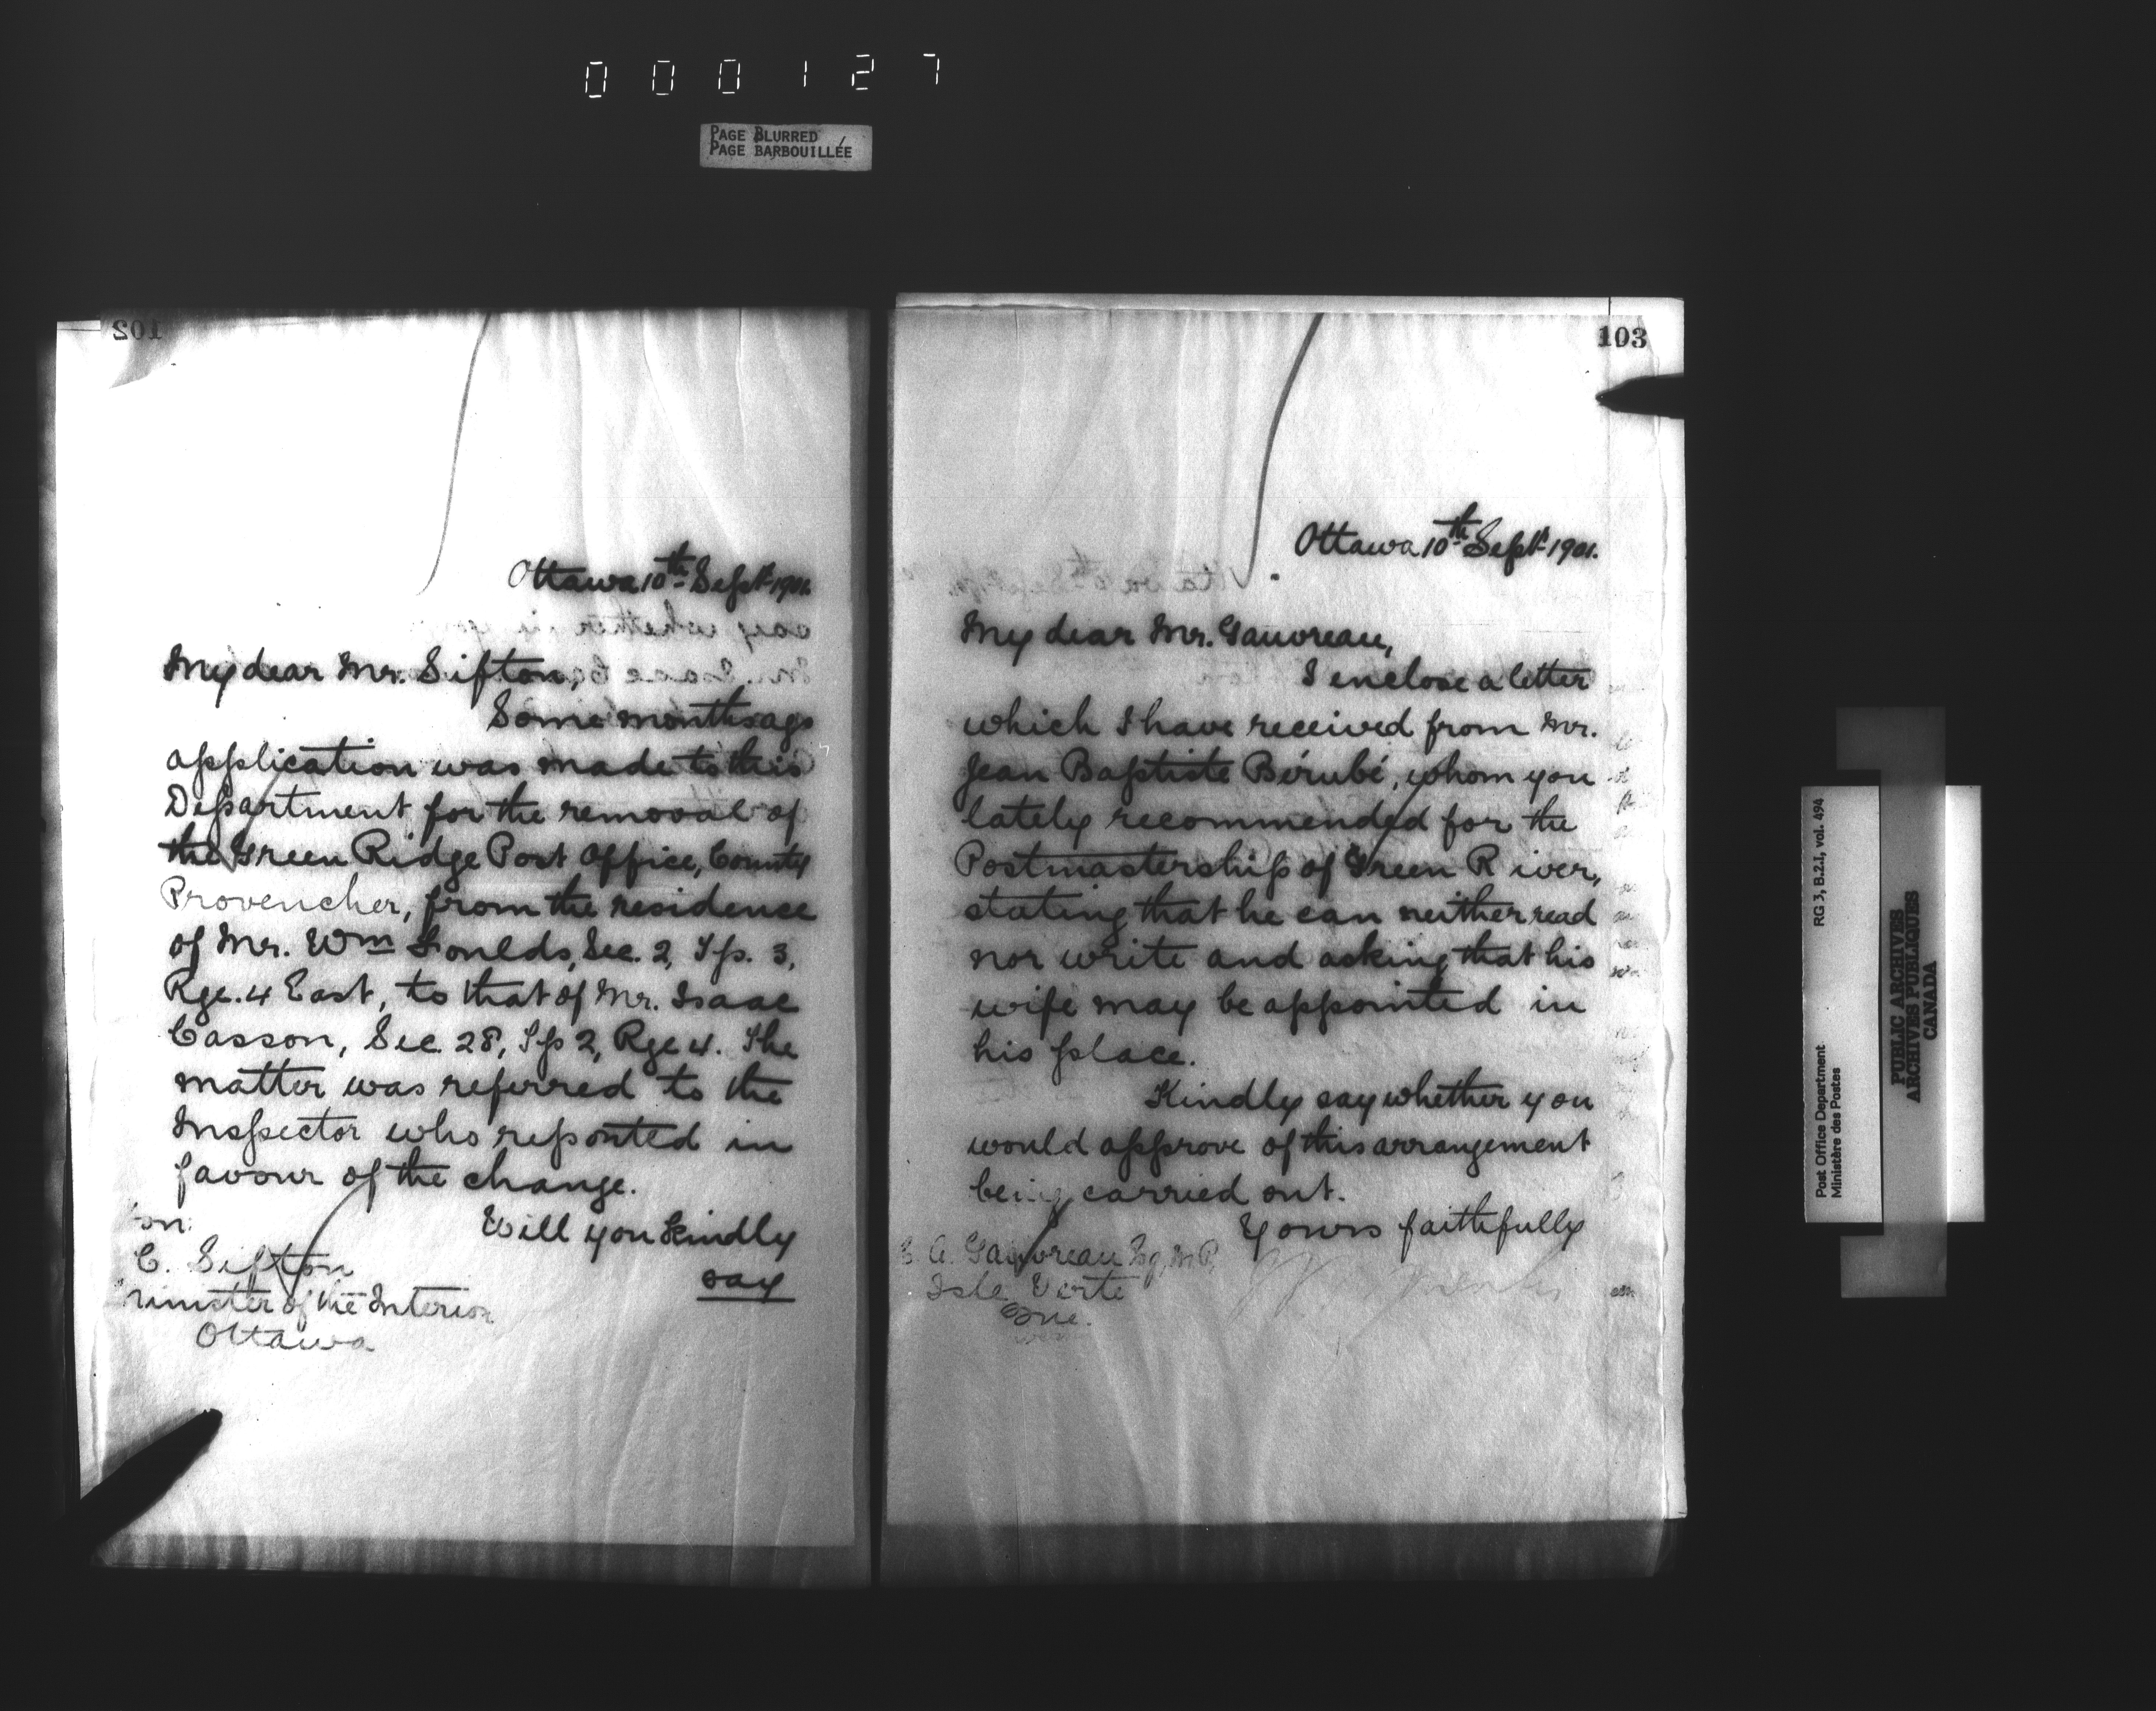 000127
PAGE BLURRED
PAGE BARBOUILLÉE
102
Ottawa 10th Sept 1901.
My dear Mr. Sifton,
Some months ago
application was made to this
Department for the removal of
the Green Ridge Post Office, County
Provencher, from the residence
of Mr. Wm Foulds, Sec. 2, Tp. 3,
Rge. 4 East, to that of Mr. Isaac
Casson, Sec. 28, Tp 2, Rge 4. The
matter was referred to the
Inspector who reported in
favour of the change.
Will you kindly
say
on.
C. Sifton
Minister of the Interior
Ottawa
103
Ottawa 10th Sept 1901.
My dear Mr. Gauvreau,
I enclose a letter
which I have received from Mr.
Jean Baptiste Bérubé, whom you
lately recommended for the
Postmastership of Green River,
stating that he can neither read
nor write and asking that his
wife may be appointed in
his place.
Kindly say whether you
would approve of this arrangement
being carried out.
Yours faithfully
C. A. Gauvreau Esq, M.P.
Isle Verte
Que.
RG 3, B.2.I, vol. 494
Post Office Department
Ministère des Postes
PUBLIC ARCHIVES
ARCHIVES PUBLIQUES
CANADA